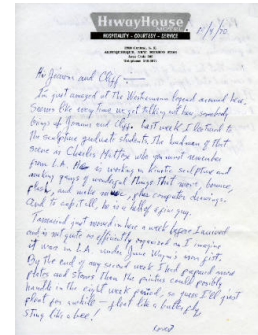 HiwayHouse
HOSPITALITY - COURTESY - SERVICE
ALBUQUERQUE, NEW MEXICO
11/4/70
and Cliff —
I'm just amazed at the legend around here.
Seems like every time we get talking out here, somebody
brings up and Cliff. Last week I lectured to
the sculpture graduate students. The head man of that
scene is Charles Mattox who you must remember
from L.A. He is working in kinetic sculpture and
making gangs of wonderful things that move, bounce,
flash, and make noise, plus computer drawings.
And to top it all, he is a hell of a fine guy.
Tamarind just moved in here a week before I arrived
and is not quite as efficiently organized as I imagine
it was in L.A. under June Wayne's iron fist.
By the end of my second week I had prepared more
plates and stones than the printers could possibly
handle in the eight week period, so now I'll just
float for a while — float like a butterfly
sting like a bee!
(over)